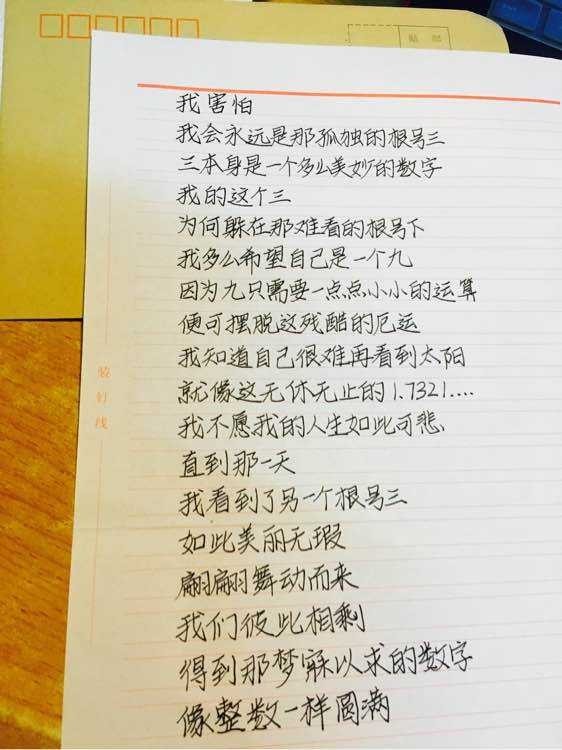 贴 邮
我害怕
我会永远是那孤独的根号三
三本身是一个多么美妙的数字
我的这个三
为何躲在那难看的根号下
我多么希望自己是一个九
因为九只需要一点点小小的运算
便可摆脱这残酷的厄运
我知道自己很难再看到太阳
就像这无休无止的1.7321....
我不愿我的人生如此可悲
直到那一天
我看到了另一个根号三
如此美丽无瑕
翩翩舞动而来
我们彼此相剩
得到那梦寐以求的数字
像整数一样圆满
装订线